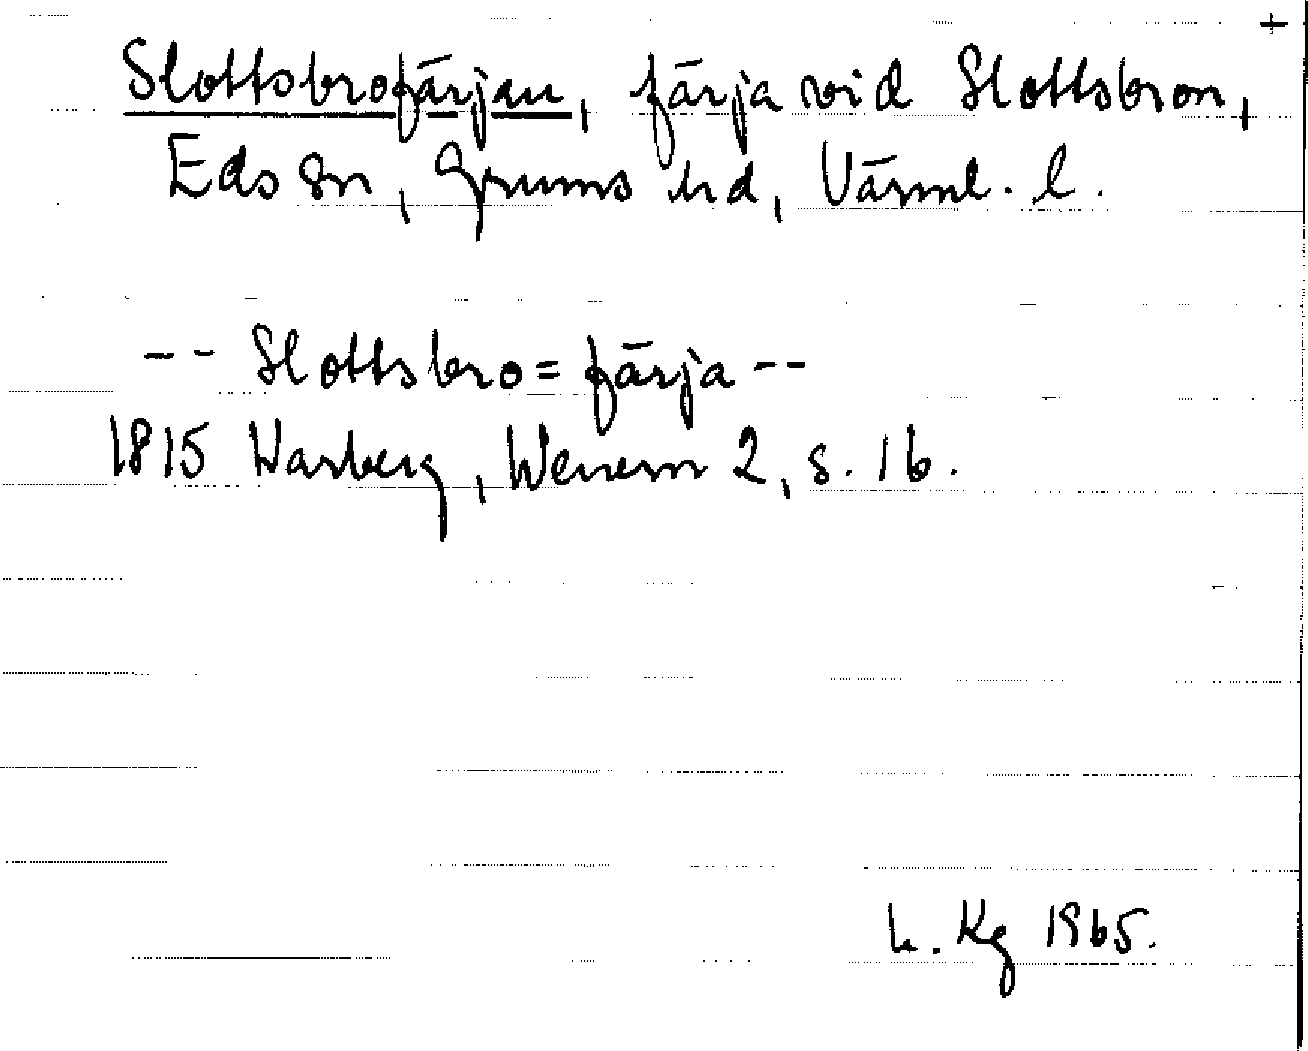 +
Slottsbrofärjan, färja vid Slottsbron,
Eds sn, Grums hd, Värml. l.
-- Slottsbro=färja --
1815 Warberg, Wenern 2, s. 16.
L. Kg 1965.